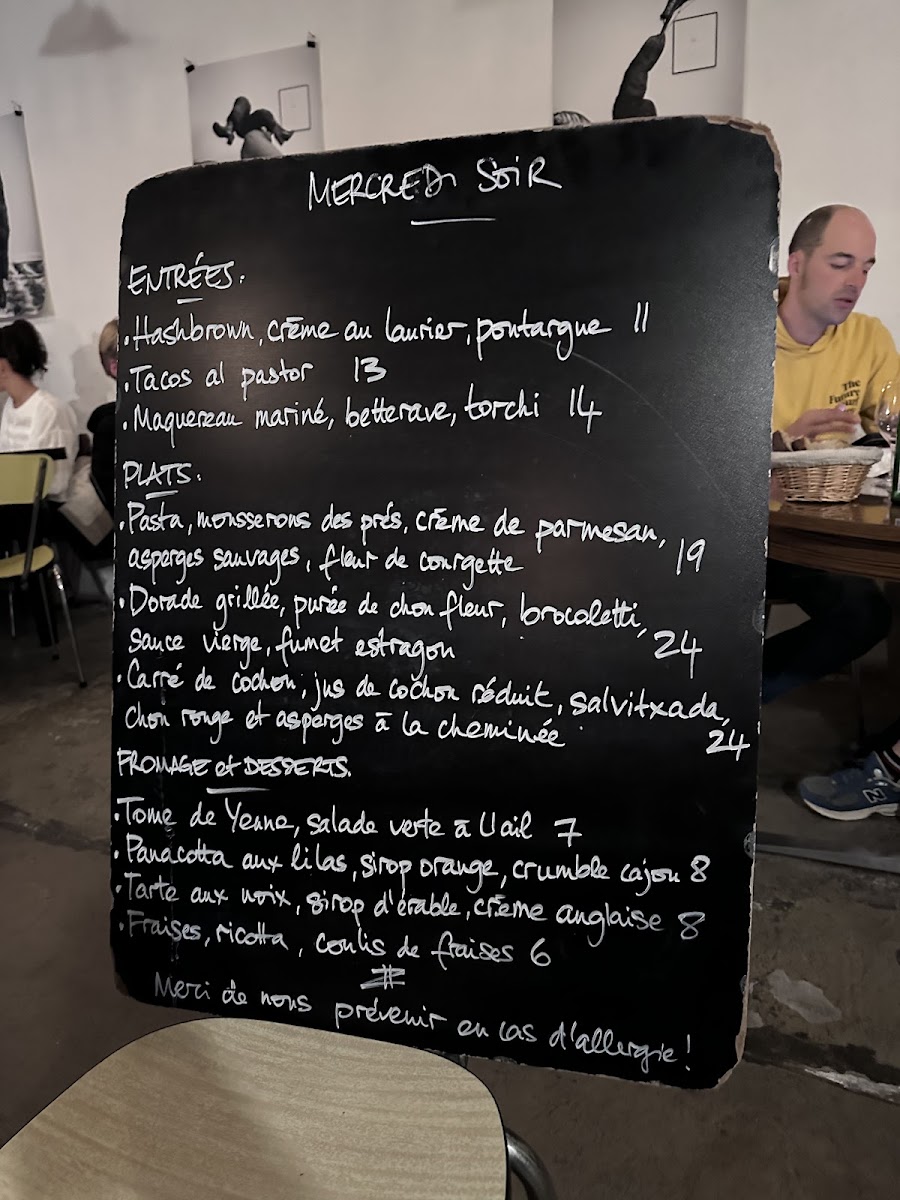 MERCREDI SOIR
ENTRÉES:
• Hashbrown, crème au laurier, pontargue 11
• Tacos al pastor 13
• Maquereau mariné, betterave, torchi 14
PLATS:
• Pasta, mousserons des prés, crème de parmesan,
asperges sauvages, fleur de courgette 19
• Dorade grillée, purée de chou fleur, brocoletti,
sauce vierge, fumet estragon 24
• Carré de cochon, jus de cochon réduit, salvitxada,
chou rouge et asperges à la cheminée 24
FROMAGE et DESSERTS.
• Tome de Yenne, salade verte à l'ail 7
• Panacotta aux lilas, sirop orange, crumble cajou 8
• Tarte aux noix, sirop d'érable, crème anglaise 8
• Fraises, ricotta, coulis de fraises 6
Merci de nous prévenir en cas d'allergie!
The
N